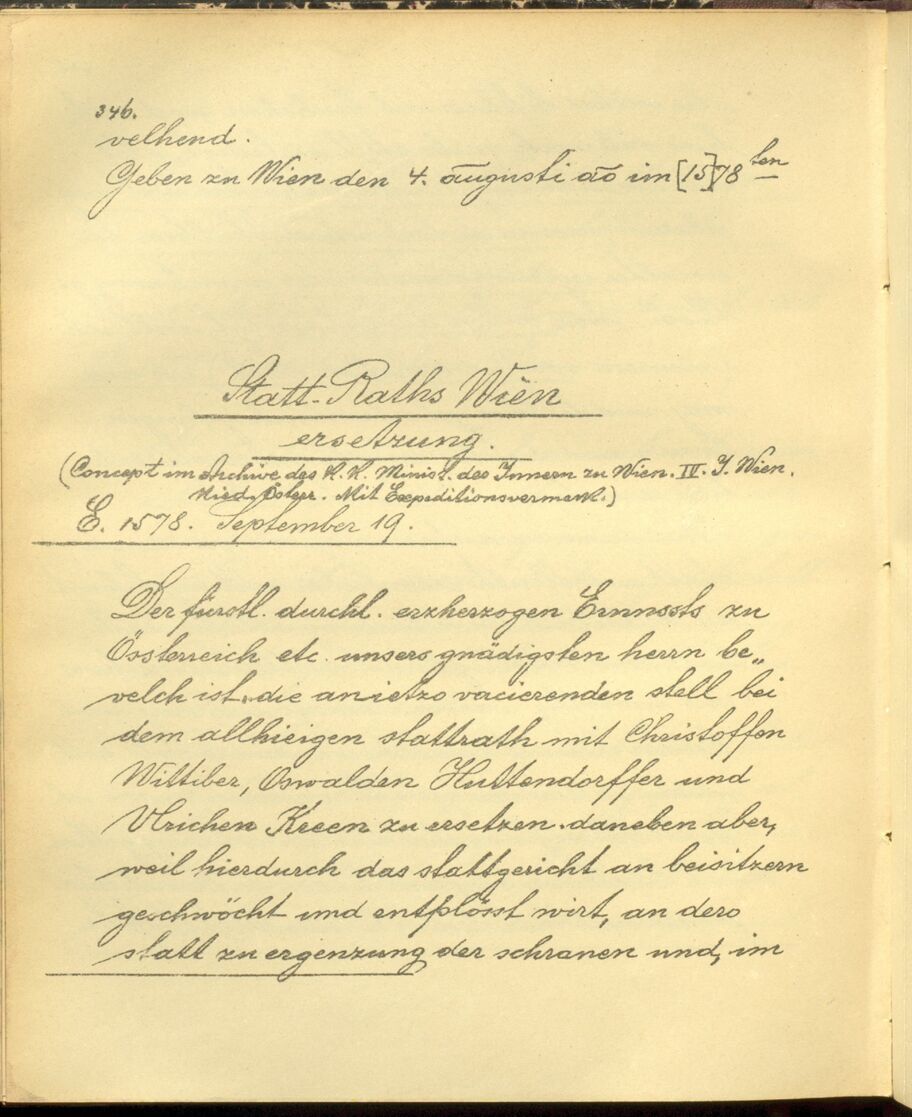 346.
velhend.
Geben zu Wien den 4. augusti aō im [15]78 ten
Statt-Raths Wien
ersetzung.
(Concept im Archive des K. K. Minist. des Innern zu Wien. IV. J. Wien.
Nied. Österr. Mit Expeditionsvermerk.)
E. 1578. September 19.
Der fürstl. durchl. erzherzogen Ernnssts zu
Össterreich etc. unsers gnädigsten herrn be„
velch ist, die an ietzo vacierenden stell bei
dem allhieigen stattrath mit Christoffen
Wittiber, Oswalden Huttendorffer und
Vlrichen Kreen zu ersetzen. daneben aber,
weil hierdurch das stattgericht an beisitzern
geschwöcht und entplösst wirt, an dero
statt zu ergenzung der schranen und, im